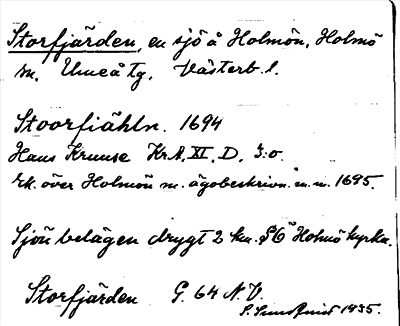 Storfjärden, en sjö å Holmön, Holmö
sn. Umeå tg. Västerb. l.
Stoorfiähln. 1694
Hans Kruuse Kr.A. XI. D. 3:o.
rk. över Holmön m. ägobeskrivn. m.m. 1695.
Sjön belägen drygt 2 km. SÖ Holmö kyrka.
Storfjärden G. 64 N.V.
S. Sundqvist 1935.